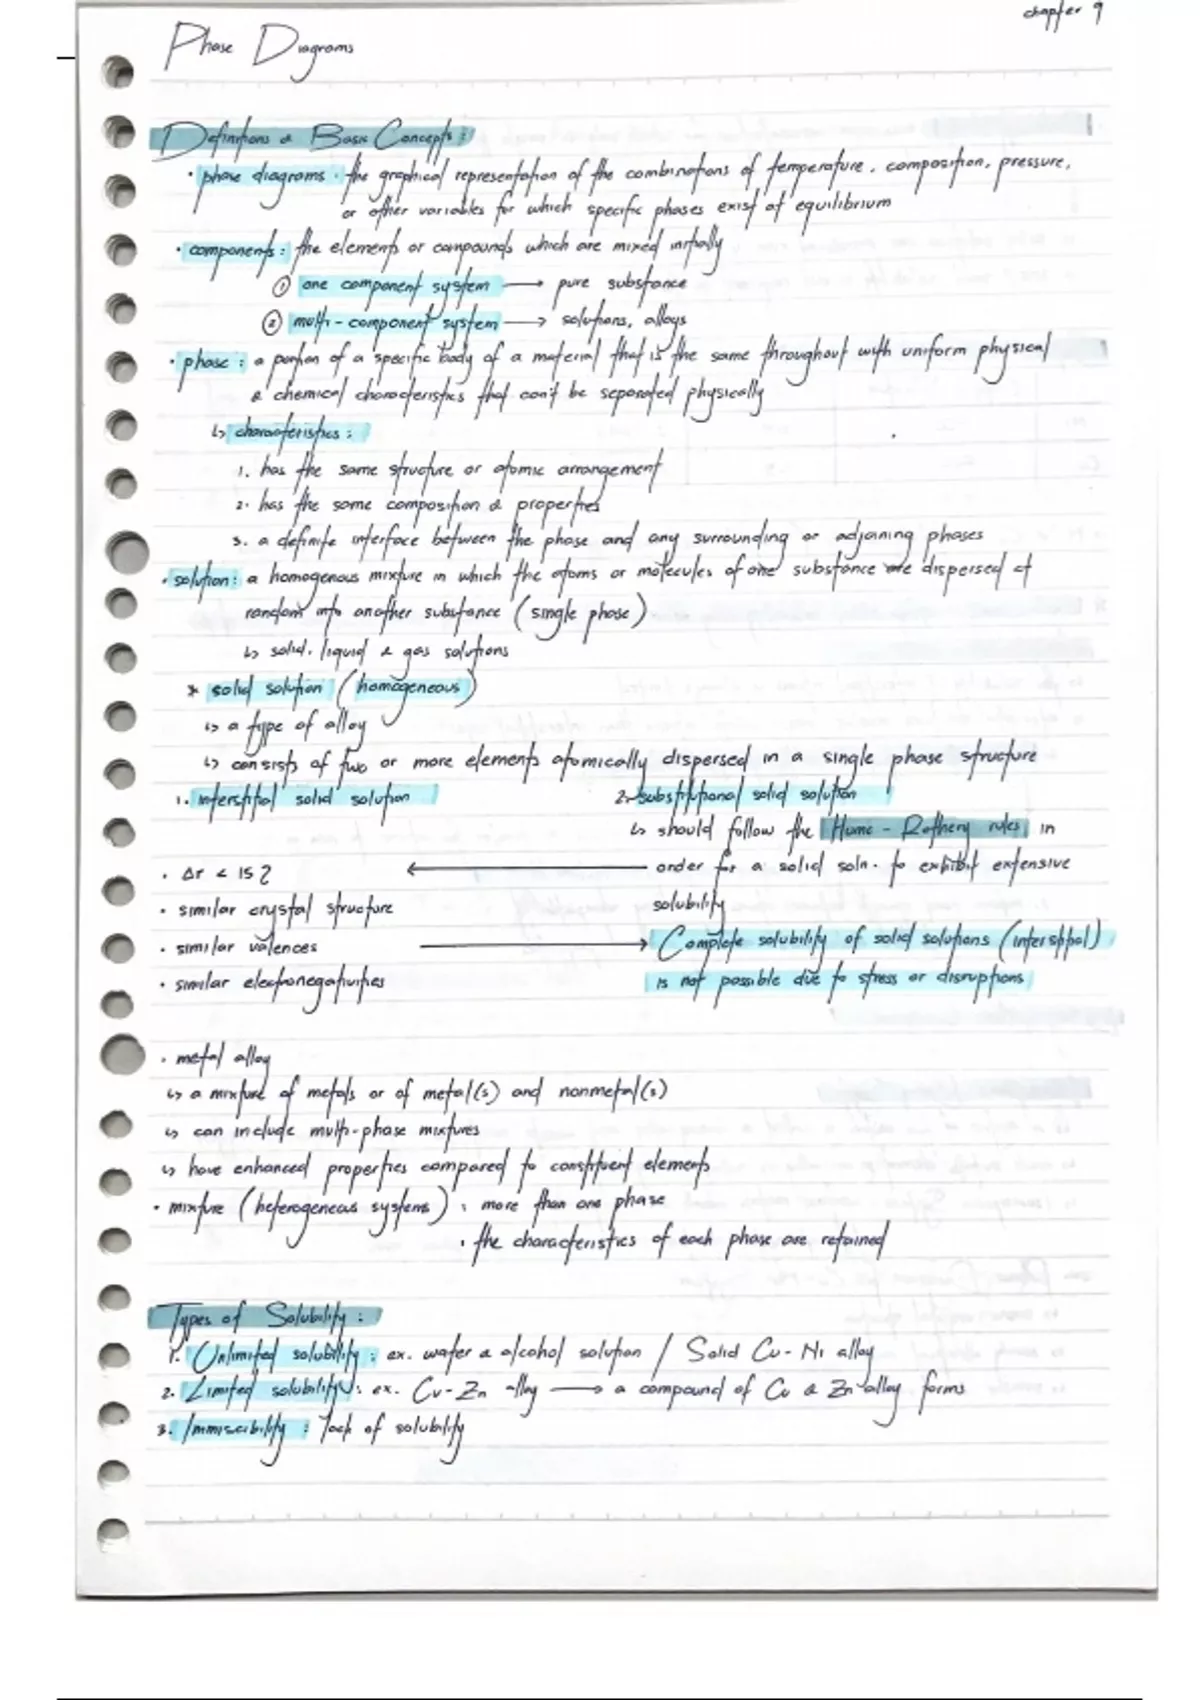 chapter 9
Phase Diagrams
Definitions & Basic Concepts:
• phase diagrams: the graphical representation of the combinations of temperature, composition, pressure,
or other variables for which specific phases exist at equilibrium
• components: the elements or compounds which are mixed initially
① one component system → pure substance
② multi-component system → solutions, alloys
• phase: a portion of a specific body of a material that is the same throughout with uniform physical
& chemical characteristics that can't be separated physically
↳ characteristics:
1. has the same structure or atomic arrangement
2. has the same composition & properties
3. a definite interface between the phase and any surrounding or adjoining phases
• solution: a homogenous mixture in which the atoms or molecules of one substance are dispersed at
random into another substance (single phase)
↳ solid, liquid & gas solutions
* solid solution (homogeneous)
↳ a type of alloy
↳ consists of two or more elements atomically dispersed in a single phase structure
1. interstitial solid solution
2. substitutional solid solution
↳ should follow the Hume-Rothery rules in
order for a solid soln. to exhibit extensive
solubility
• Δr < 15%
• similar crystal structure
• similar valences
• similar electronegativities
Complete solubility of solid solutions (interstitial)
is not possible due to stress or disruptions
• metal alloy
↳ a mixture of metals or of metal(s) and nonmetal(s)
↳ can include multi-phase mixtures
↳ have enhanced properties compared to constituent elements
• mixture (heterogeneous systems): more than one phase
• the characteristics of each phase are retained
Types of Solubility:
1. Unlimited solubility: ex. water & alcohol solution / Solid Cu-Ni alloy
2. Limited solubility: ex. Cu-Zn alloy → a compound of Cu & Zn alloy forms
3. Immiscibility: lack of solubility